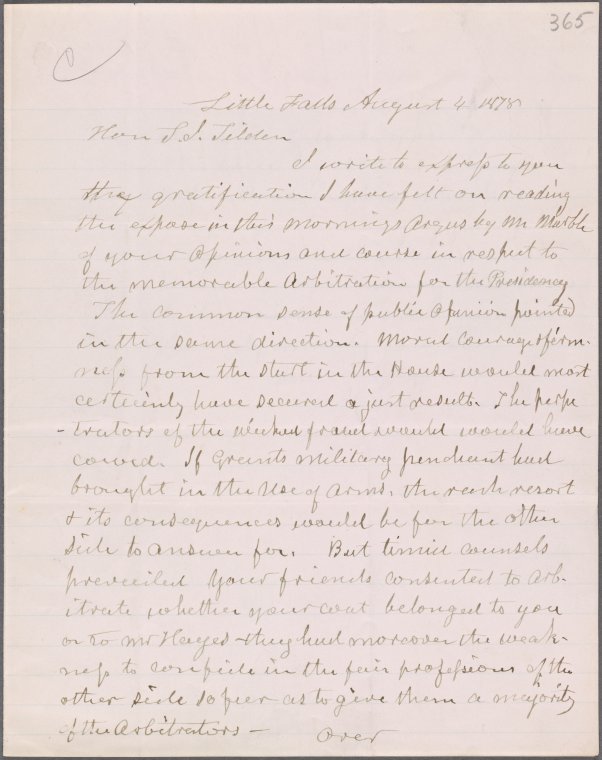 365
Little Falls August 4 1878
Hon S. J. Tilden
I write to express to you
the gratification I have felt on reading
the expose in this mornings Argus by Mr Marble
of your opinions and course in respect to
the memorable Arbitration for the Presidency
The common sense of public opinion pointed
in the same direction. Moral courage & firm-
ness from the start in the House would most
certainly have secured a just result. The perpe
-trators of the wicked fraud would would have
cowed. If Grants military penchant had
brought in the use of arms, the rash resort
& its consequences would be for the other
side to answer for. But timid counsels
prevailed Your friends consented to arb-
itrate whether your coat belonged to you
or to Mr Hayes & they had moreover the weak-
ness to confide in the fair professions of the
other side so far as to give them a majority
of the Arbitrators -
Over